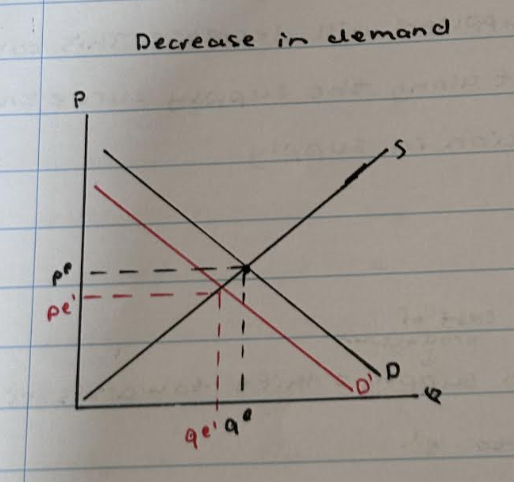 Decrease in demand
P
S
pe
pe'
D
D'
Q
qe' qe